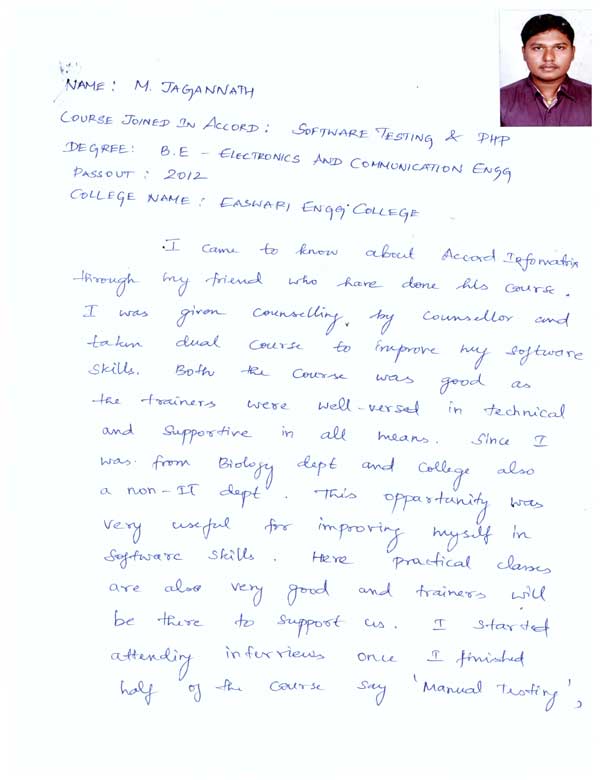 NAME: M. JAGANNATH
COURSE JOINED IN ACCORD: SOFTWARE TESTING & PHP
DEGREE: B.E - ELECTRONICS AND COMMUNICATION ENGG
PASSOUT: 2012
COLLEGE NAME: EASWARI ENGG. COLLEGE
I came to know about Accord Infomatrix
through my friend who have done his course.
I was given counselling, by counsellor and
taken dual course to improve my software
skills. Both the course was good as
the trainers were well-versed in technical
and supportive in all means. Since I
was from Biology dept and college also
a non-IT dept. This oppartunity was
very useful for improving myself in
software skills. Here practical classes
are also very good and trainers will
be there to support us. I started
attending interviews once I finished
half of the course say 'Manual Testing',